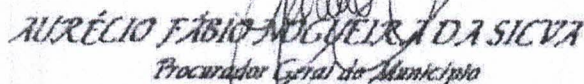 AURÉCIO FÁBIO NOGUEIRA DA SICVA
Procurador Geral do Município